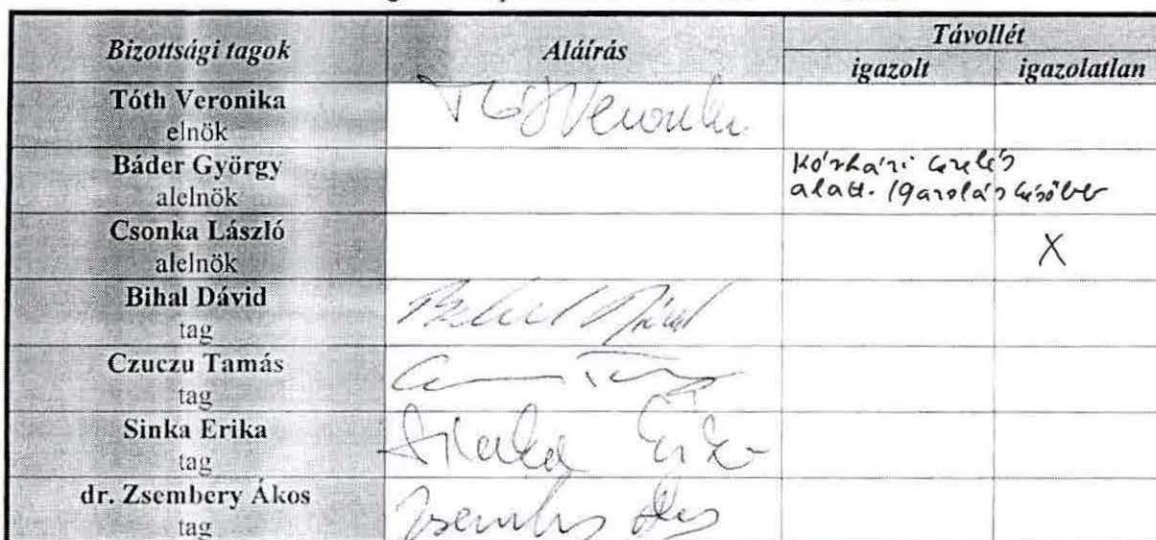 Bizottsági tagok Aláírás Távollét
igazolt igazolatlan
Tóth Veronika
elnök
Tóth Veronika
Báder György
alelnök
Kórházi kezelés
alatt. Igazolás később
Csonka László
alelnök
X
Bihal Dávid
tag
Bihal Dávid
Czuczu Tamás
tag
Sinka Erika
tag
Sinka Erika
dr. Zsembery Ákos
tag